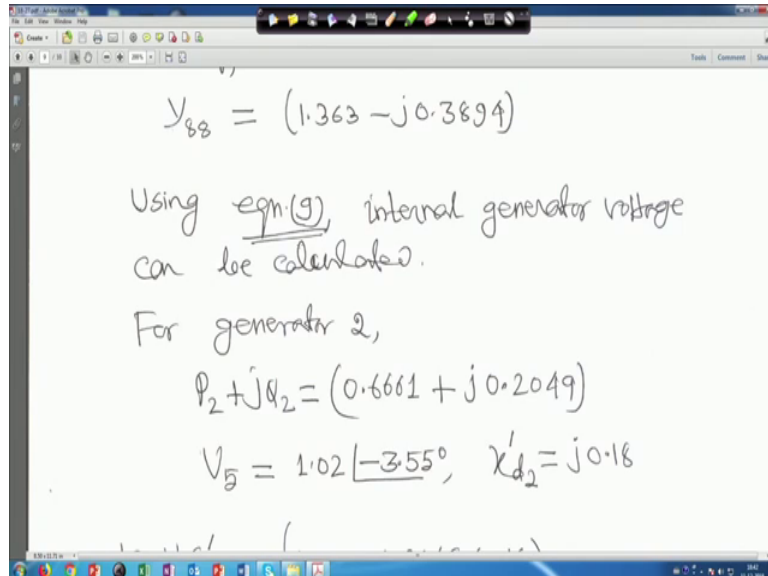 File Edit View Window Help
Create
Tools Comment
y88 = (1.363 - j0.3894)
Using eqn.(9), internal generator voltage
can be calculated.
For generator 2,
P2 + jQ2 = (0.6661 + j0.2049)
V5 = 1.02 ∠-3.55°, x'd2 = j0.18